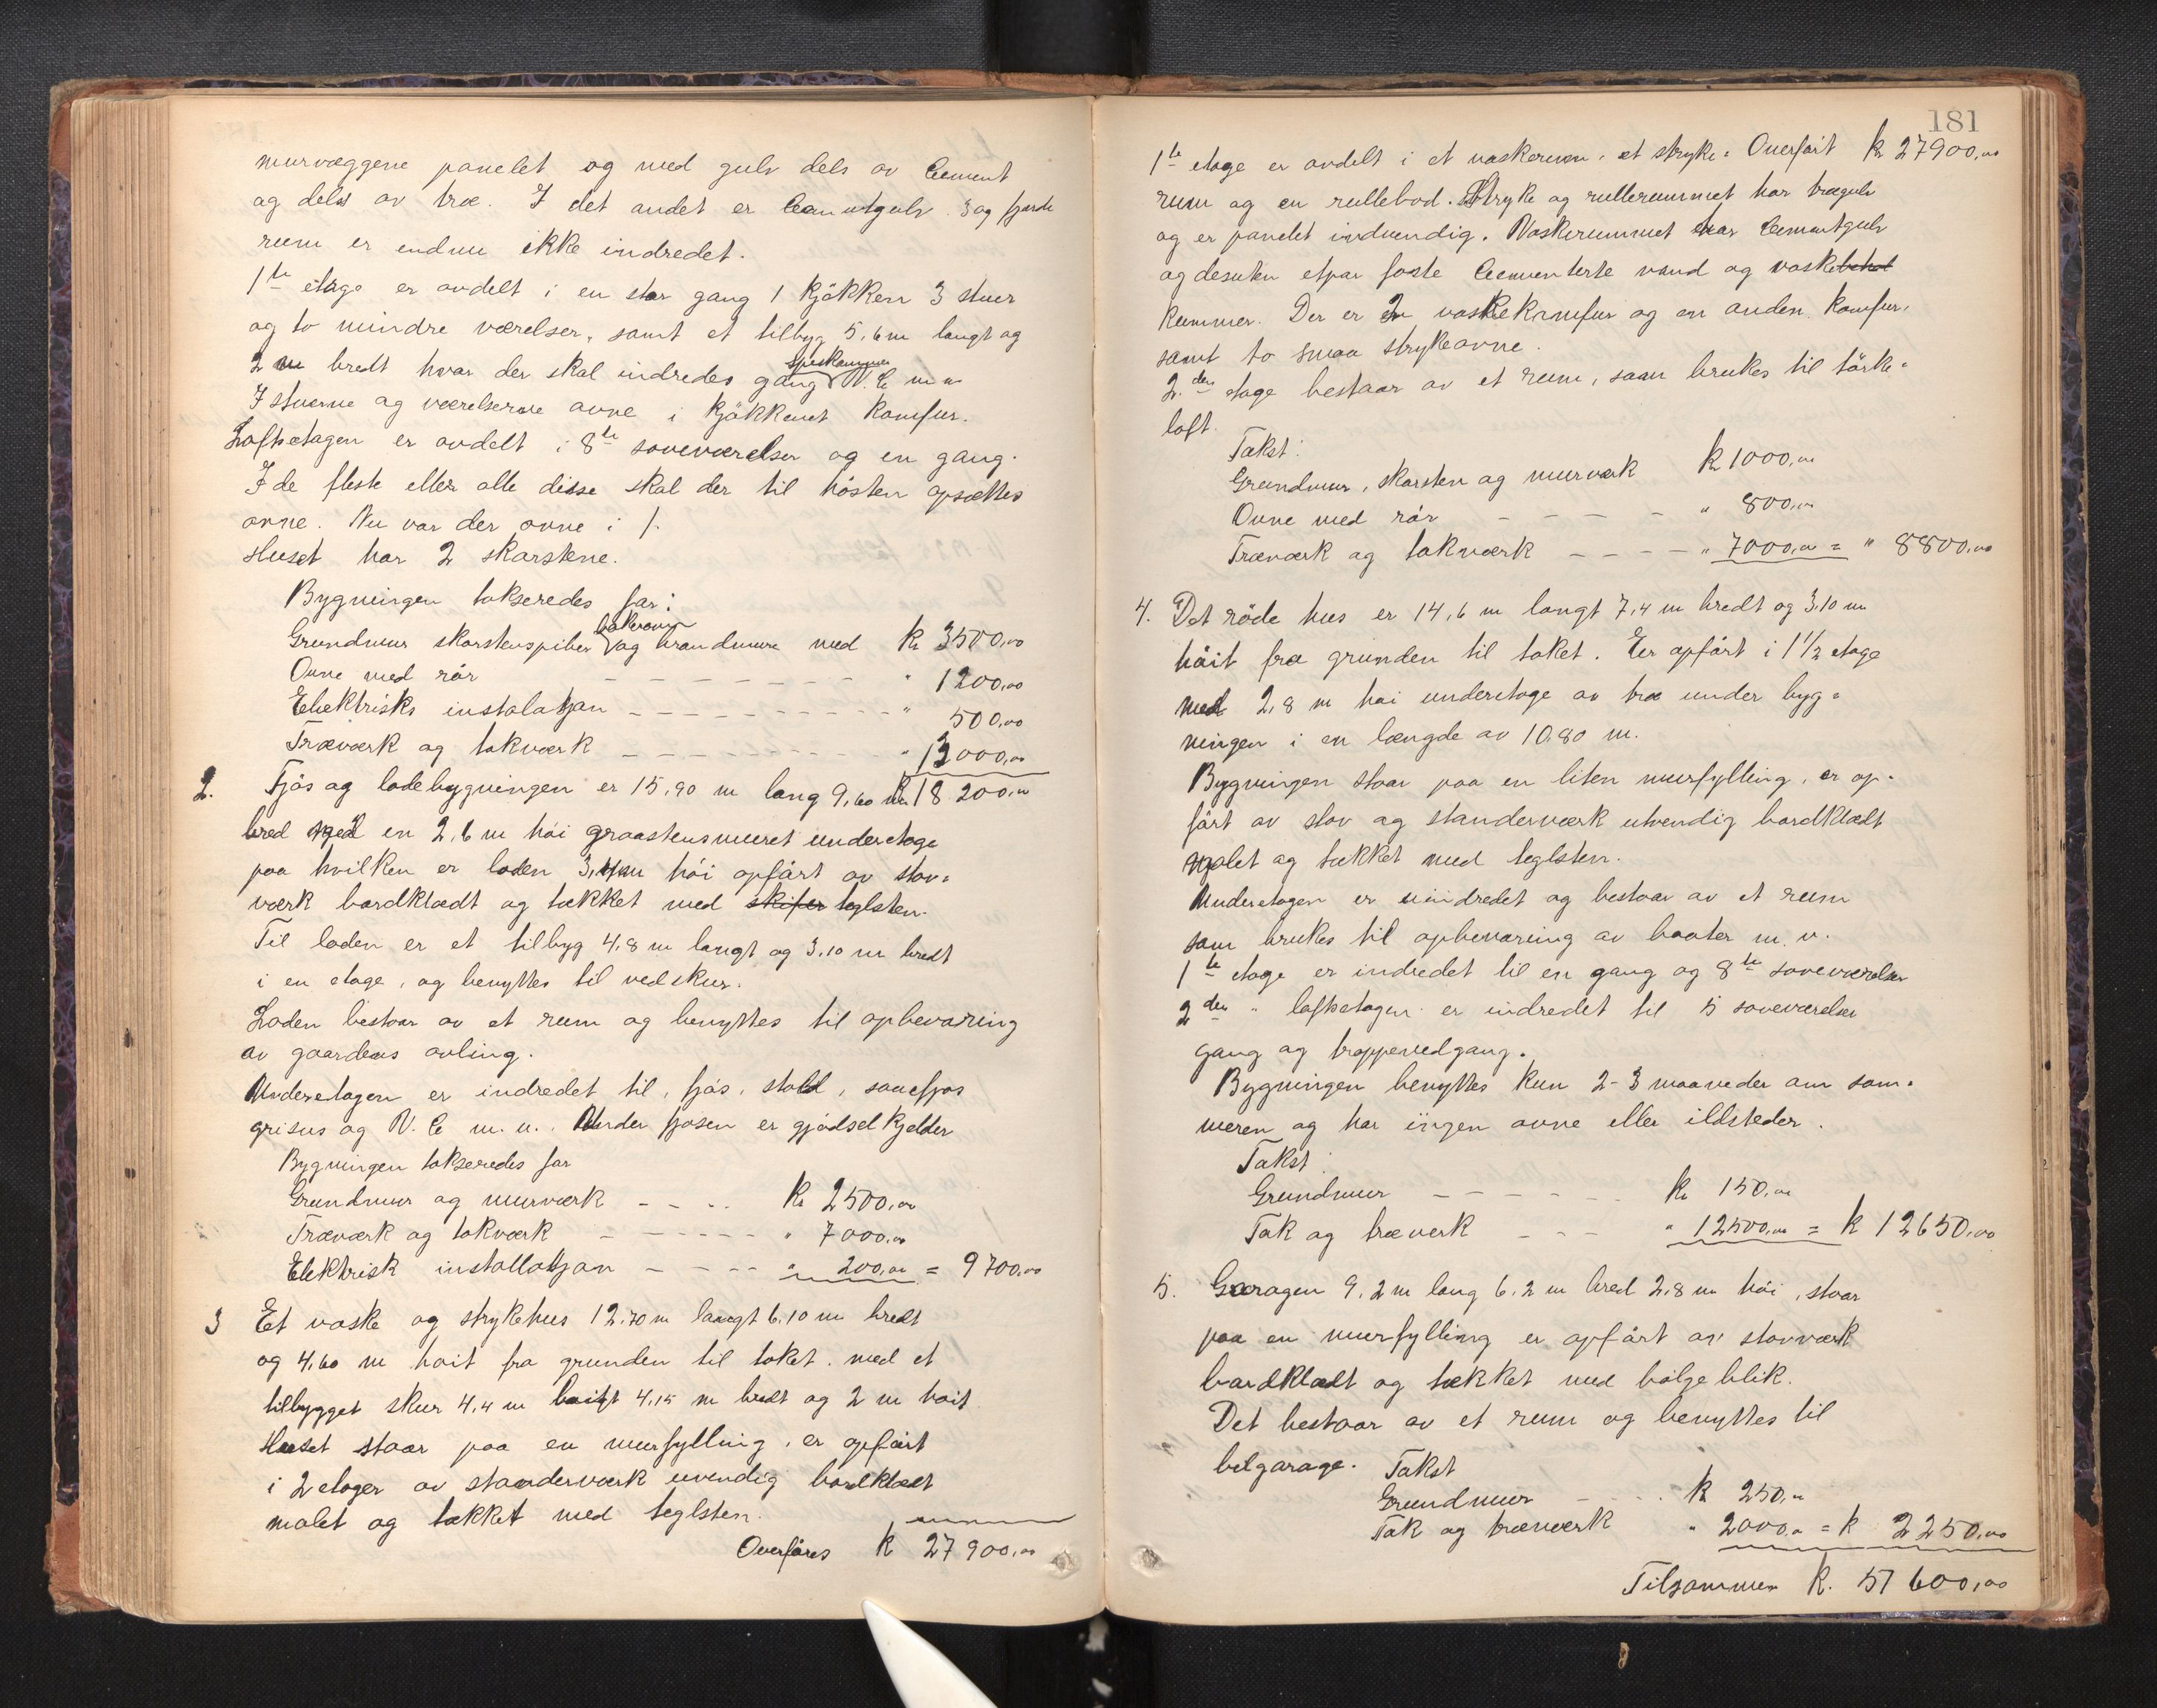 murvæggene panelet og med gulv dels av Cement
og dels av træ. I det andet er Cementgulv. 3 og fjerde
rum er endnu ikke indredet.
1ste etage er avdelt i en stor gang 1 kjøkken 3 stuer
og to mindre værelser, samt et tilbyg 5,6 m langt og
2 m bredt hvor der skal indredes gang spiskammer V. C. m m
I stuerne og værelserne ovne i kjøkkenet komfur.
Loftsetagen er avdelt i 8te soveværelser og en gang.
I de fleste eller alle disse skal der til høsten opsættes
ovne. Nu var der ovne i 1.
Huset har 2 skorstene.
Bygningen takseredes for:
Grundmur skorstenspiber bakerovn og brandmure med kr 3500,00
Ovne med rør - - - - - - - " 1200,00
Elektriske instalatjon - - - - - - - - - " 500,00
Træværk og takværk - - - - - - - " 13000,00
2. Fjøs og ladebygningen er 15,90 m lang 9,60 m kr 18200,00
bred med en 2,6 m høi graastensmuret underetage
paa hvilken er laden 3,4 m høi opført av stav=
værk bordklædt og tækket med skifer teglsten.
Til laden er et tilbyg 4,8 m langt og 3,10 m bredt
i en etage, og benyttes til vedskur.
Laden bestaar av et rum og benyttes til opbevaring
av gaardens avling.
Underetagen er indredet til, fjøs, stald, sauefjøs
grisus og V. C m. v. Under fjøsen er gjødselkjelder
Bygningen takseredes for
Grundmur og murværk - - - - kr 2500,00
Træværk og takværk - - - - - - " 7000,00
Elektrisk installatjon - - - - " 200,00 = 9700,00
3 Et vaske og strykehus 12,70 m langt 6,10 m bredt
og 4,60 m høit fra grunden til taket. med et
tilbygget skur 4,4 m langt 4,15 m bredt og 2 m høit
Huset staar paa en murfylling, er opført
i 2 etager av standerværk uvendig bordklædt
malet og tækket med teglsten.
Overføres k 27900,00
181
1te etage er avdelt i et vaskerum, et stryke= Overført kr 27900,00
rum og en rullebod. Stryke og rullerummet har trægulv
og er panelet indvendig. Vaskerummet har Cementgulv
og desuten etpar faste Cementerte vand og vaskebehol
kummer. Der er en vaskekomfur og en anden komfur,
samt to smaa strykeovne.
2den etage bestaar av et rum, som brukes til tørke=
loft.
Takst:
Grundmur, skorsten og murværk kr 1000,00
Ovne med rør - - - - - " 800,00
Træværk og takværk - - - - " 7000,00 = " 8800,00
4. Det røde hus er 14,6 m langt 7,4 m bredt og 3,10 m
høit fra grunden til taket. Er opført i 1 1/2 etage
med 2,8 m høi underetage av træ under byg=
ningen i en længde av 10,80 m.
Bygningen staar paa en liten murfylling, er op=
ført av stav og standerværk utvendig bordklædt
malet og tækket med teglsten.
Underetagen er uindredet og bestaar av et rum
som brukes til opbevaring av baater m. v.
1te etage er indredet til en gang og 8te soveværelser
2den " loftsetagen er indredet til 5 soveværelser
gang og trappenedgang.
Bygningen benyttes kun 2-3 maaneder om som=
meren og har ingen ovne eller ildsteder.
Takst:
Grundmur - - - - - - kr 150,00
Tak og træverk - - - " 12500,00 = k 12650,00
5. Garagen 9,2 m lang 6,2 m bred 2,8 m høi, staar
paa en murfylling er opført av stavværk
bordklædt og tækket med bølgeblik.
Det bestaar av et rum og benyttes til
bilgarage. Takst
Grundmur - - - - k 250,00
Tak og træværk " 2000,00 = k 2250,00
Tilsammen k. 51600,00